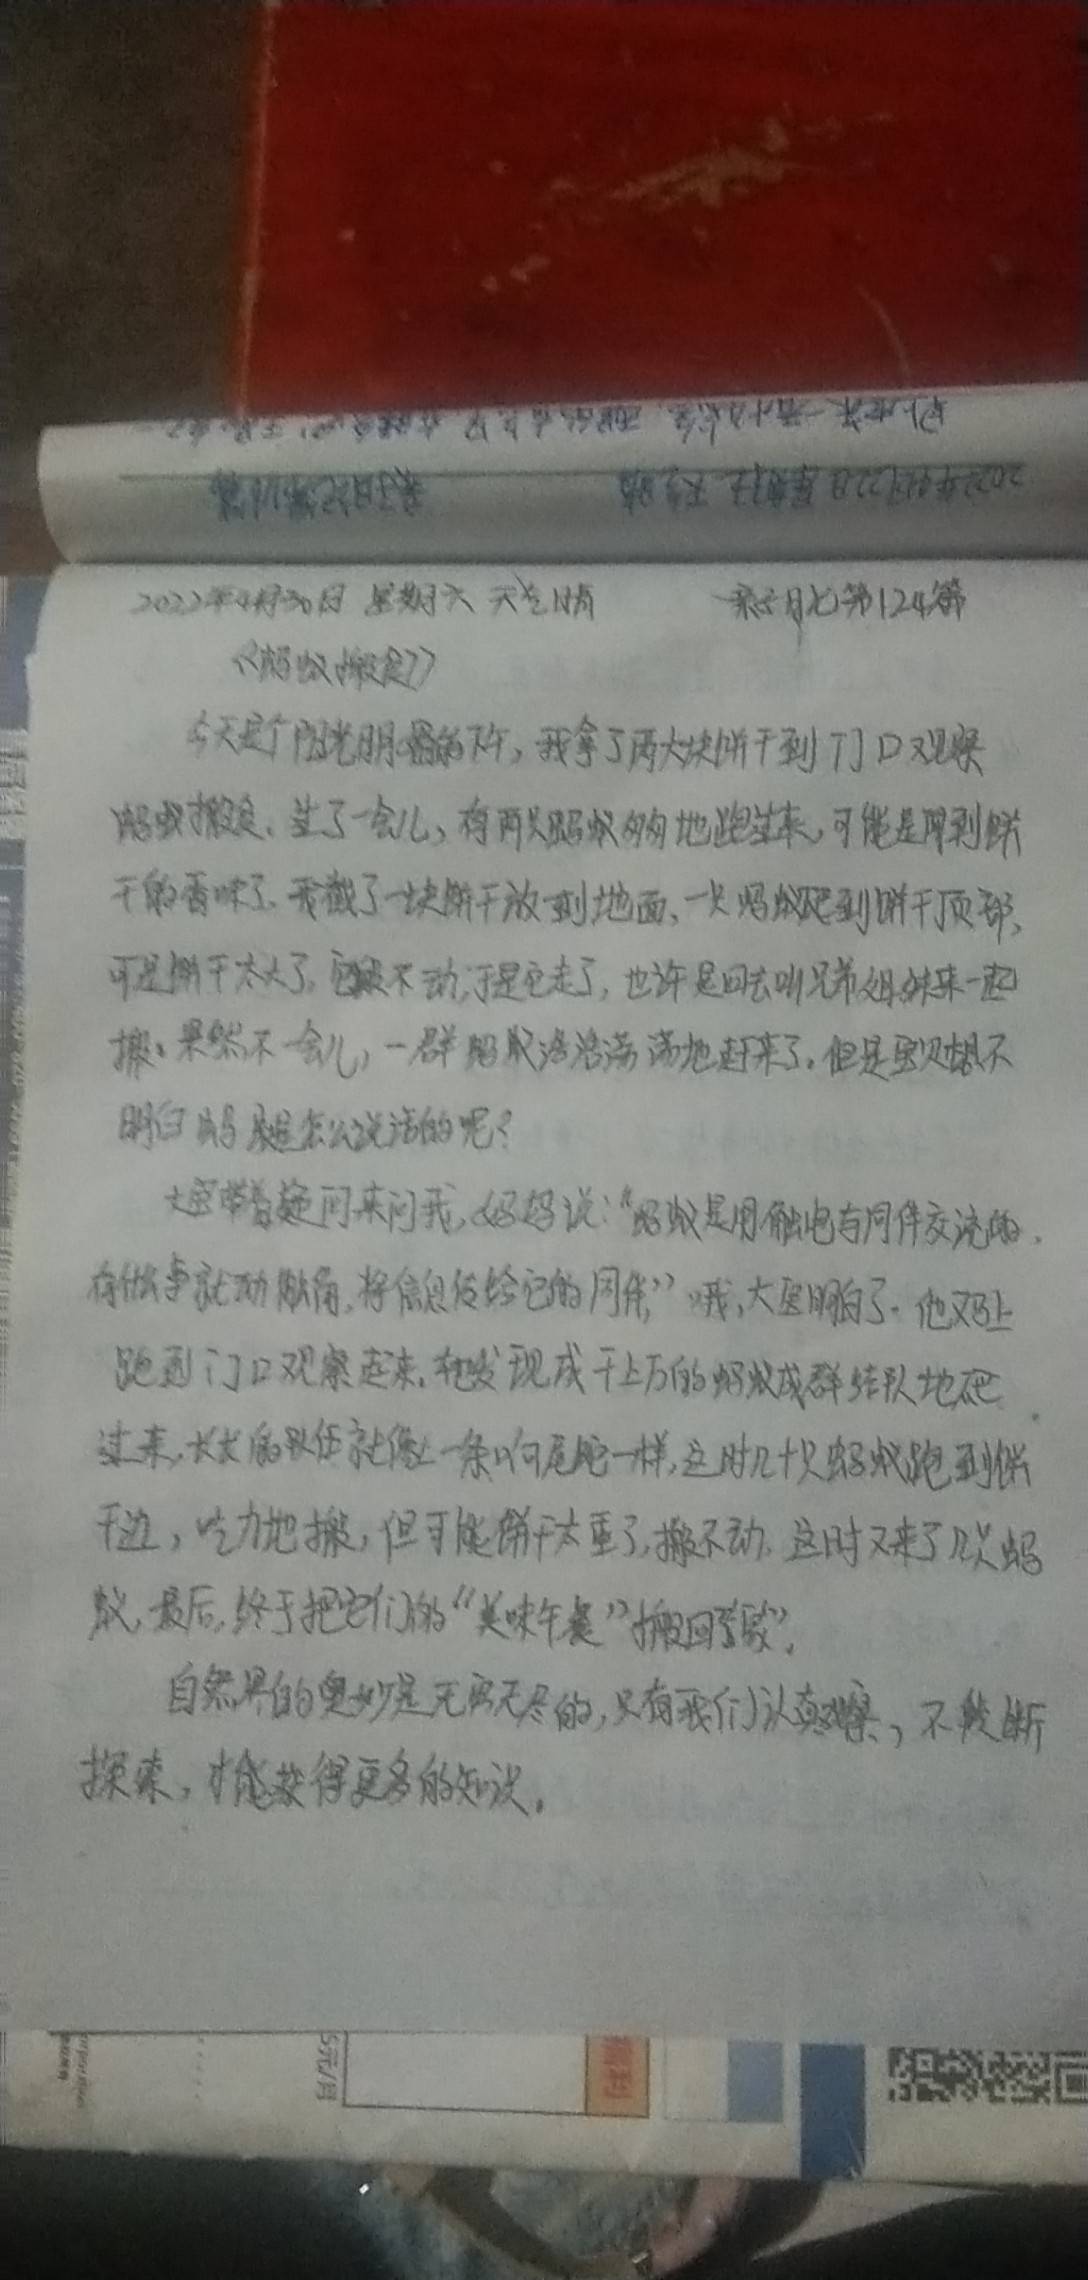 2022年4月30日 星期六 天气晴 第124篇
《蚂蚁搬食》
今天是个阳光明媚的下午，我拿了两大块饼干到门口观察
蚂蚁搬食。过了一会儿，有两只蚂蚁匆匆地跑过来，可能是闻到饼
干的香味了。我截了一块饼干放到地面，一只蚂蚁爬到饼干顶部，
可是饼干太大了，它搬不动，于是它走了，也许是回去叫兄弟姐妹来一起
搬。果然不一会儿，一群蚂蚁浩浩荡荡地赶来了。但是宝贝想不
明白蚂蚁是怎么说话的呢？
大宝带着疑问来问我，妈妈说：“蚂蚁是用触电与同伴交流的，
有什么事就动触角，将信息传给它的同伴”哦，大宝明白了。他又马上
跑到门口观察起来，发现成千上万的蚂蚁成群结队地爬
过来，长长的队伍就像一条响尾蛇一样，这时几十只蚂蚁跑到饼
干边，吃力地搬，但可能饼干太重了，搬不动，这时又来了几只蚂
蚁，最后，终于把它们的“美味午餐”搬回“家”。
自然界的奥妙是无穷无尽的，只有我们认真观察，不断
探索，才能获得更多的知识。
5元/月